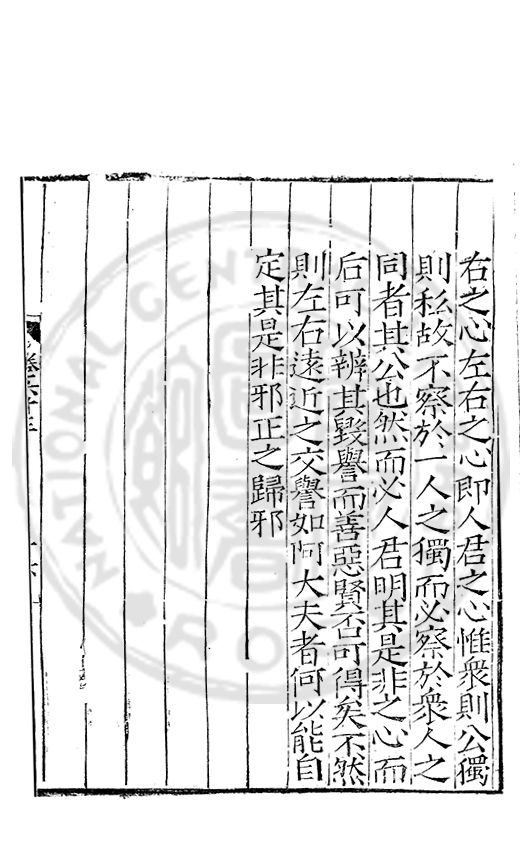 右之心左右之心即人君之心惟衆則公獨
則私故不察於一人之獨而必察於衆人之
同者其公也然而必人君明其是非之心而
后可以辨其毀譽而善惡賢否可得矣不然
則左右遠近之交譽如阿大夫者何以能自
定其是非邪正之歸邪
卷六十三
NATIONAL CENTRAL